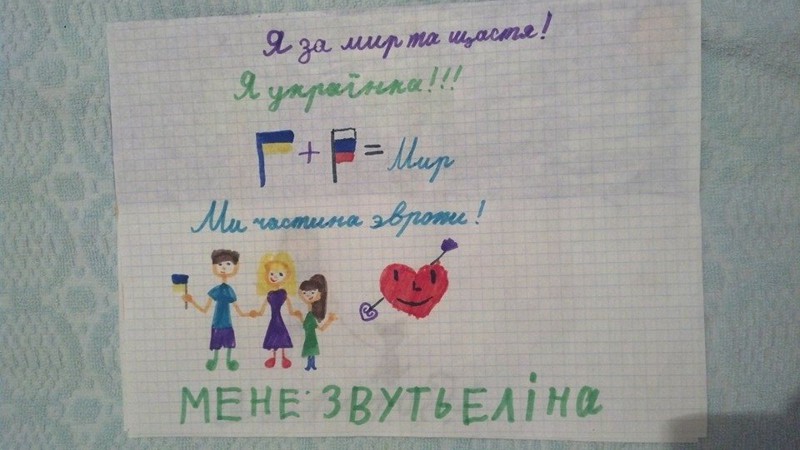 Я за мир та щастя!
Я українка!!!
+ = Мир
Ми частина эвропи!
МЕНЕ ЗВУТЬ ЕЛІНа